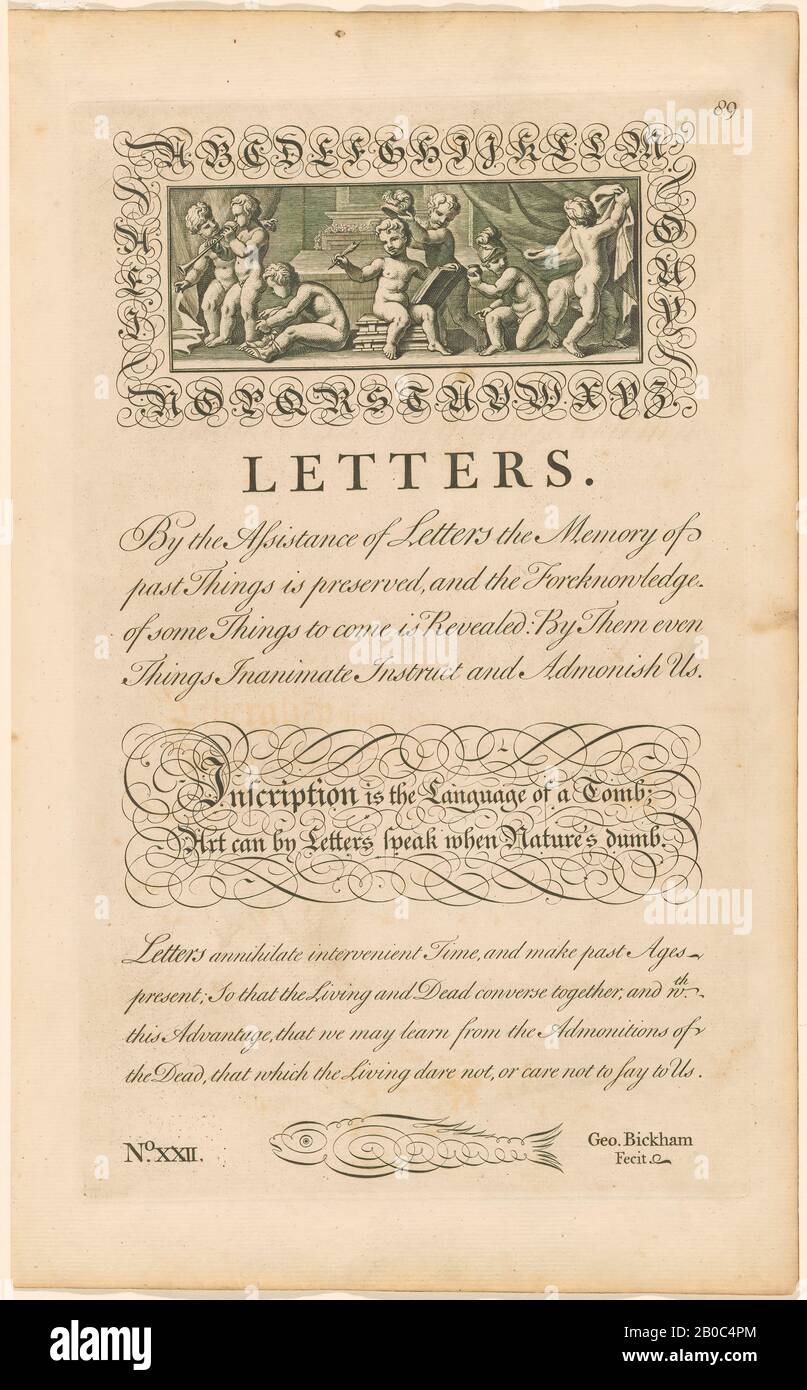 89
A B C D E F G H I J K L L M
A E I O U Y
N O P Q R S T U V W X Y Z
LETTERS.
By the Aſsistance of Letters the Memory of
past Things is preserved, and the Foreknowledge
of some Things to come is Revealed: By Them even
Things Inanimate Instruct and Admonish Us.
Inſcription is the Language of a Tomb;
Art can by Letters ſpeak when Nature's dumb.
Letters annihilate intervenient Time, and make past Ages
present; So that the Living and Dead converse together, and wth.
this Advantage, that we may learn from the Admonitions of
the Dead, that which the Living dare not, or care not to ſay to Us.
No. XXII.
Geo. Bickham
Fecit.
alamy
Image ID: 2B0C4PM
www.alamy.com